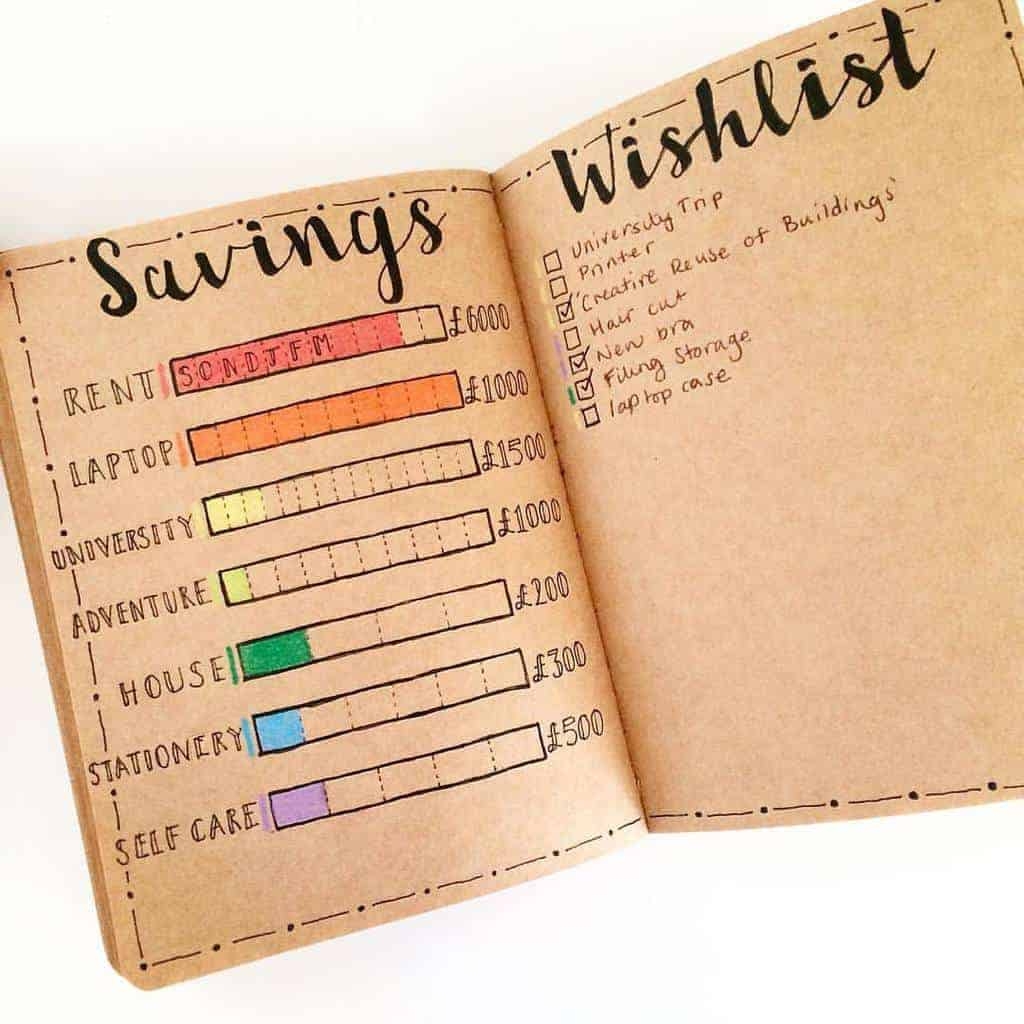 Savings
RENT SONDJFM £6000
LAPTOP £1000
UNIVERSITY £1500
ADVENTURE £1000
HOUSE £200
STATIONERY £300
SELF CARE £500
Wishlist
University Trip
Printer
'Creative Reuse of Buildings'
Hair cut
New bra
Filing Storage
laptop case